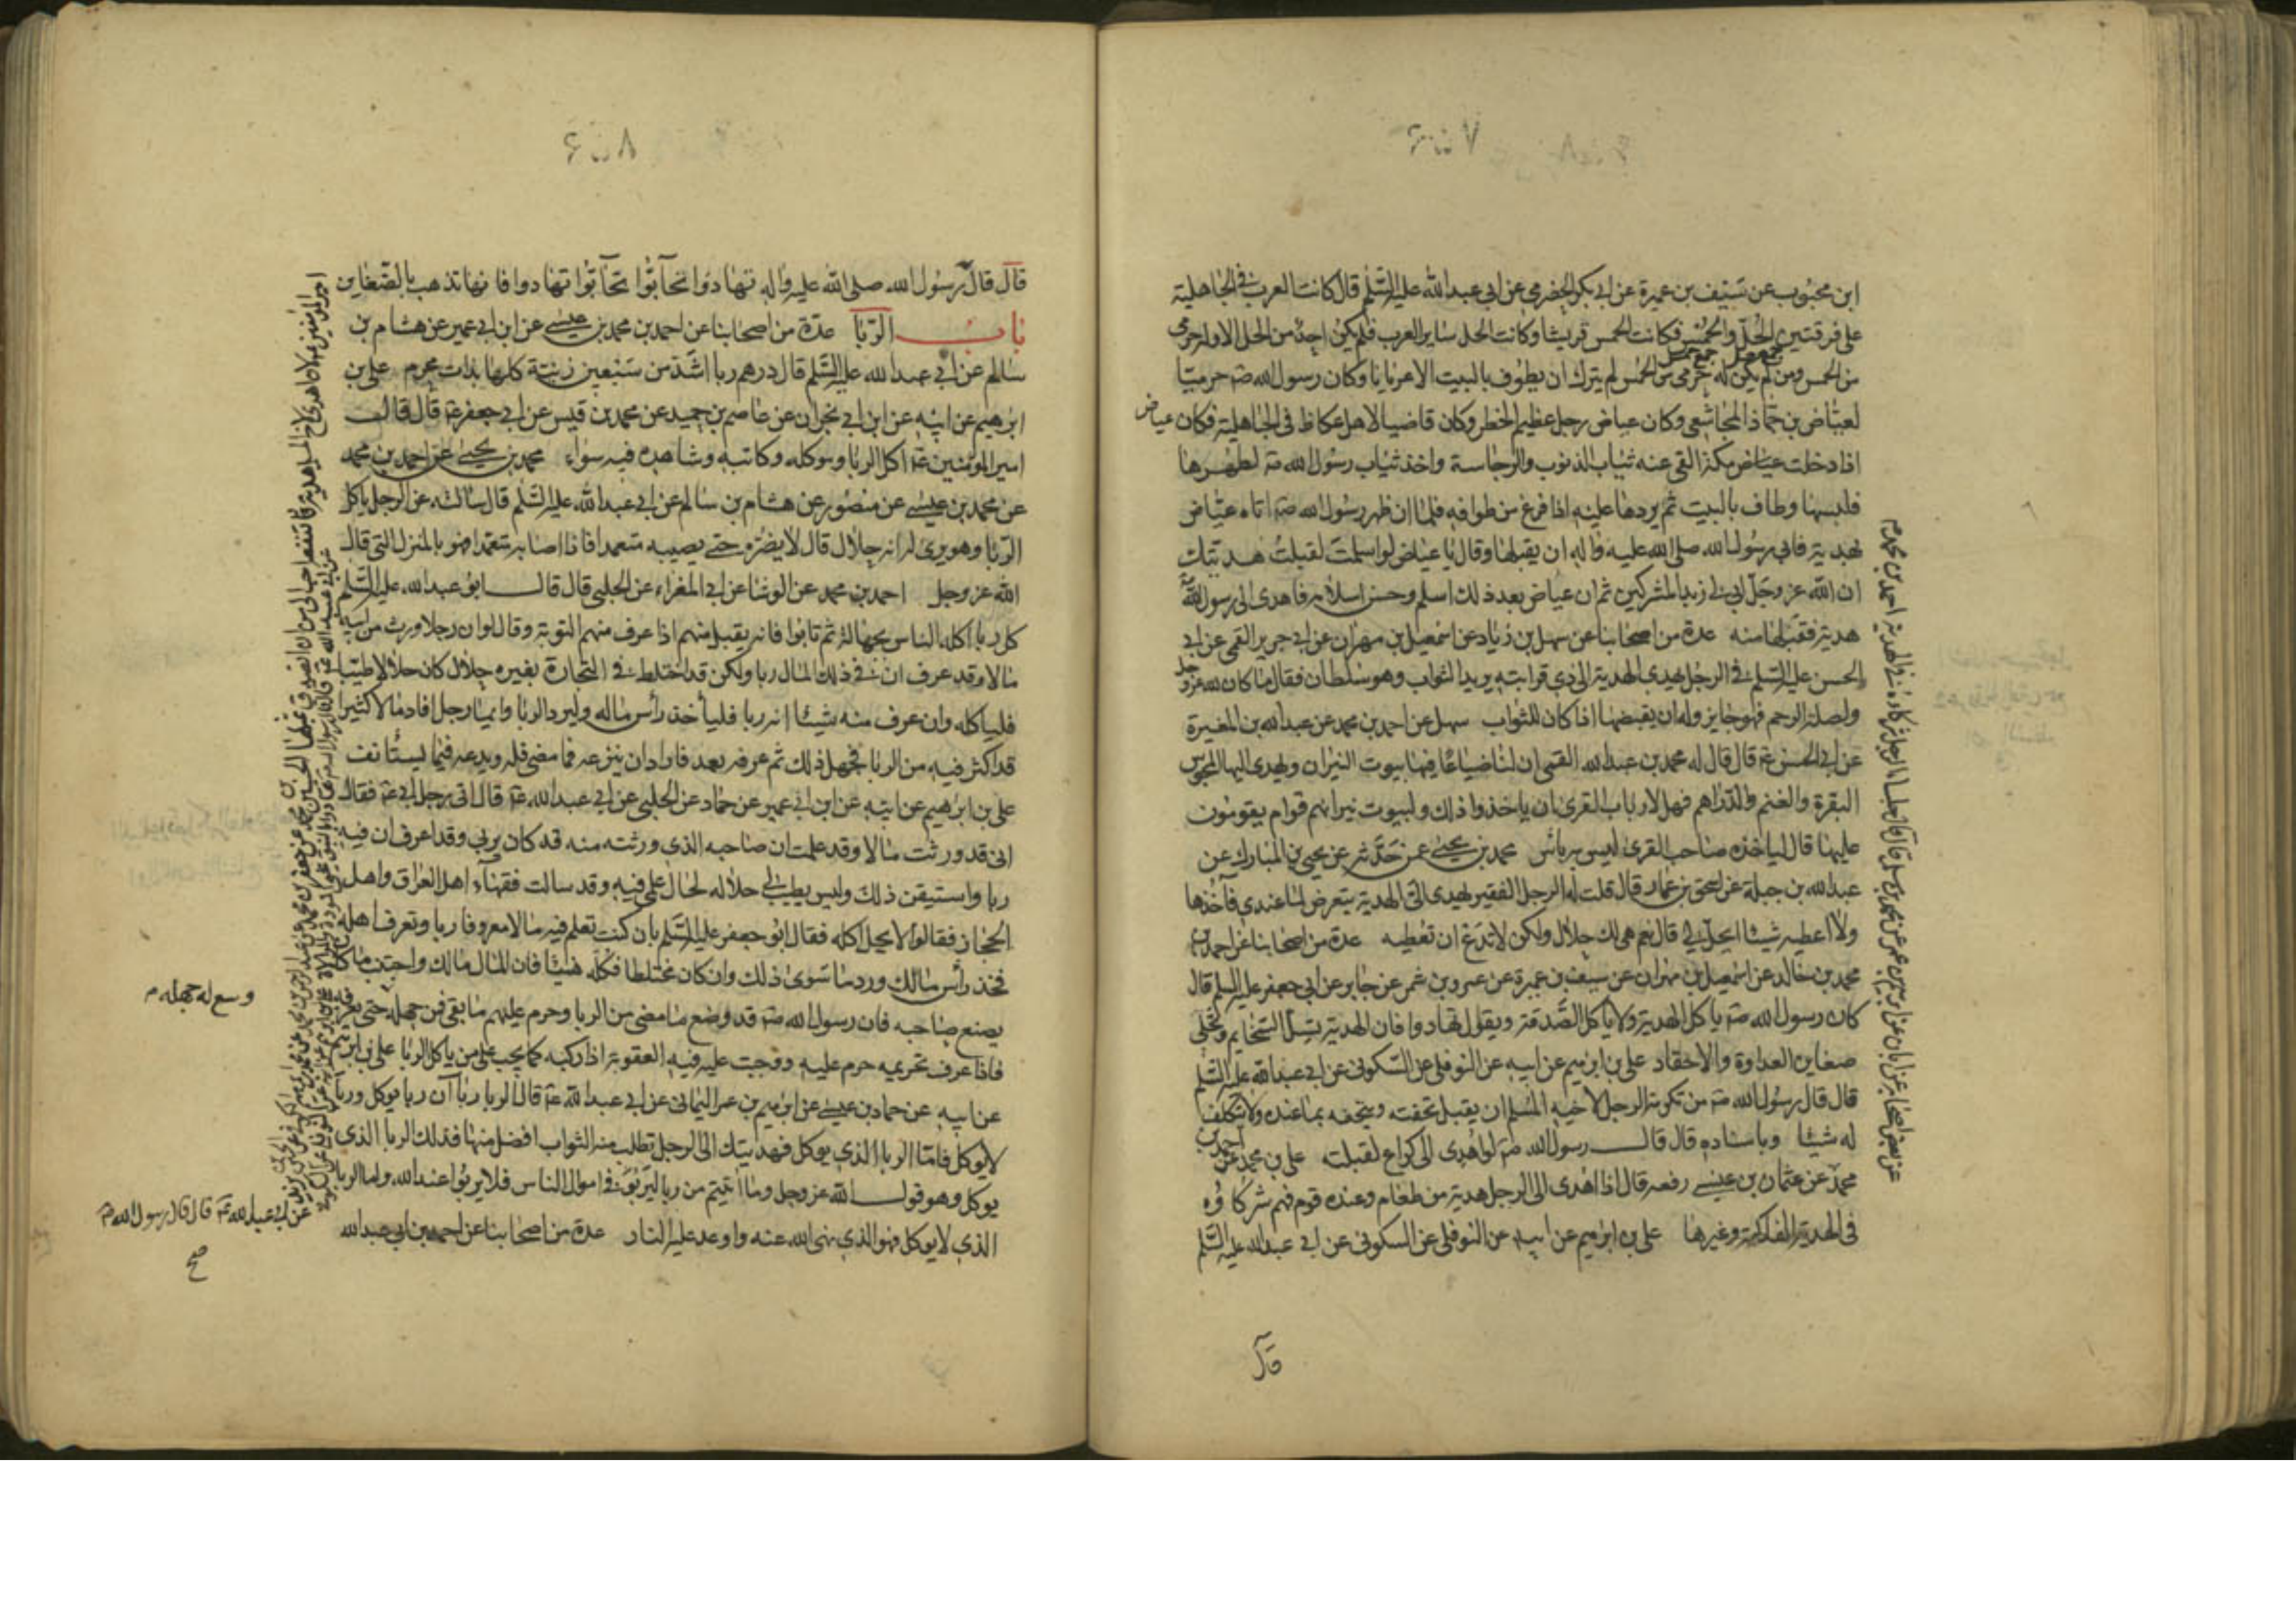 ابن محبوب عن سيف بن عميرة عن ابي بكر الحضرمي عن ابي عبد الله عليه السلم قال كانت العرب في الجاهلية
على فرقتين الحل والحمس فكانت الحمس قريشا وكانت الحل ساير العرب فلم يكن احد من الحل الا وله حرمي
من الحمس ومن لم يكن له حرمي من الحمس لم يترك ان يطوف بالبيت الا عريانا وكان رسول الله صه حرميا
لعياض بن حماد المجاشعي وكان عياض رجل عظيم الخطر وكان قاضيا لاهل عكاظ في الجاهلية فكان عياض
اذا دخلت عياض مكة القى عنه ثياب الذنوب والرجاسة واخذ ثياب رسول الله صه لطهرها
فلبسها وطاف بالبيت ثم يردها عليه اذا فرغ من طوافه فلما ان ظهر رسول الله صه اتاه عياض
بهدية فابى رسول الله صلى الله عليه واله ان يقبلها وقال يا عياض لو اسلمت لقبلت هديتك
ان الله عز وجل ابى لي زبد المشركين ثم ان عياض بعد ذلك اسلم وحسن اسلامه فاهدى الى رسول الله
هدية فقبلها منه عدة من اصحابنا عن سهل بن زياد عن اسمعيل بن مهران عن ابي جرير القمي عن ابي
الحسن عليه السلم في الرجل يهدي الهدية الى ذي قرابته يريد الثواب وهو سلطان فقال ما كان لله عز وجل
ولصلة الرحم فهو جايز وله ان يقبضها اذا كان للثواب سهل عن احمد بن محمد عن عبد الله بن المغيرة
عن ابي الحسن عه قال قال له محمد بن عبد الله القمي ان لنا ضياعا فيها بيوت النيران ويهدى اليها المجوس
البقرة والغنم والدراهم فهل لارباب القرى ان ياخذوا ذلك ولبيوت نيرانهم قوام يقومون
عليها قال لياخذه صاحب القرى ليس به باس محمد بن يحيى عمن حدثه عن يحيى بن المبارك عن
عبد الله بن جبلة عن اسحق بن عمار قال قلت له الرجل الفقير يهدى الي الهدية يتعرض لما عندي فآخذها
ولا اعطيه شيئا ايحل لي قال نعم هي لك حلال ولكن لا تدع ان تعطيه عدة من اصحابنا عن احمد بن
محمد بن خالد عن اسمعيل بن مهران عن سيف بن عميرة عن عمرو بن شمر عن جابر عن ابي جعفر عليه السلم قال
كان رسول الله صه ياكل الهدية ولا ياكل الصدقة ويقول تهادوا فان الهدية تسل السخايم وتجلي
ضغاين العداوة والاحقاد علي بن ابرهيم عن ابيه عن النوفلي عن السكوني عن ابي عبد الله عليه السلم
قال قال رسول الله صه من تكرمة الرجل لاخيه المسلم ان يقبل تحفته ويتحفه بما عنده ولا يتكلف
له شيئا وباسناده قال قال رسول الله صه لو اهدى الى كراع لقبلت علي بن محمد عن احمد بن
محمد عن عثمان بن عيسى رفعه قال اذا اهدى الى الرجل هدية من طعام وعنده قوم فهم شركاؤه
في الهدية الفاكهة وغيرها علي بن ابرهيم عن ابيه عن النوفلي عن السكوني عن ابي عبد الله عليه السلم
قال
قال قال رسول الله صلى الله عليه واله تهادوا تحابوا تحابوا تهادوا فانها تذهب بالضغاين
باب الربا عدة من اصحابنا عن احمد بن محمد بن عيسى عن ابن ابي عمير عن هشام بن
سالم عن ابي عبد الله عليه السلم قال درهم ربا اشد من سبعين زنية كلها بذات محرم علي بن
ابرهيم عن ابيه عن ابن ابي نجران عن عاصم بن حميد عن محمد بن قيس عن ابي جعفر عه قال قال
امير المومنين عه آكل الربا وموكله وكاتبه وشاهده فيه سواء محمد بن يحيى عن احمد بن محمد
عن محمد بن عيسى عن منصور عن هشام بن سالم عن ابي عبد الله عليه السلم قال سالته عن الرجل ياكل
الربا وهو يرى له انه حلال قال لا يضره حتى يصيبه متعمدا فاذا اصابه متعمدا فهو بالمنزل التي قال
الله عز وجل احمد بن محمد عن الوشا عن ابي المغراء عن الحلبي قال قال ابو عبد الله عليه السلم
كل ربا اكله الناس بجهالة ثم تابوا فانه يقبل منهم اذا عرف منهم التوبة وقال لو ان رجلا ورث من ابيه
مالا وقد عرف ان في ذلك المال ربا ولكن قد اختلط في التجارة بغيره حلال كان حلالا طيبا
فلياكله وان عرف منه شيئا انه ربا فلياخذ رأس ماله وليرد الربا وايما رجل افاد مالا كثيرا
قد اكثر فيه من الربا فجهل ذلك ثم عرفه بعد فاراد ان ينزعه فما مضى فله ويدعه فيما يستانف
علي بن ابرهيم عن ابيه عن ابن ابي عمير عن حماد عن الحلبي عن ابي عبد الله عه قال اتى رجل ابي عه فقال
اني قد ورثت مالا وقد علمت ان صاحبه الذي ورثته منه قد كان يربي وقد اعرف ان فيه
ربا واستيقن ذلك وليس يطيب لي حلاله لحال علمي فيه وقد سالت فقهاء اهل العراق واهل
الحجاز فقالوا لا يحل اكله فقال ابو جعفر عليه السلم بان كنت تعلم فيه مالا معروفا ربا وتعرف اهله
فخذ رأس مالك ورد ما سوى ذلك وان كان مختلطا فكله هنيئا فان المال مالك واجتنب ما كان
يصنع صاحبه فان رسول الله صه قد وضع ما مضى من الربا وحرم عليهم ما بقي فمن جهله حتى يعرفه
فاذا عرف تحريمه حرم عليه ووجبت عليه فيه العقوبة اذا ركبه كما يجب على من ياكل الربا علي بن ابرهيم
عن ابيه عن حماد بن عيسى عن ابرهيم بن عمر اليماني عن ابي عبد الله عه قال الربا ربا آن ربا يوكل وربا
لا يوكل فاما الربا الذي يوكل فهديتك الى الرجل تطلب منه الثواب افضل منها فذلك الربا الذي
يوكل وهو قول الله عز وجل وما آتيتم من ربا ليربو في اموال الناس فلا يربوا عند الله واما الربا
الذي لا يوكل فهو الذي نهى الله عنه واوعد عليه النار عدة من اصحابنا عن احمد بن ابي عبد الله
وسع له جهله م
عن ابي عبد الله عه قال قال رسول الله ص
صح